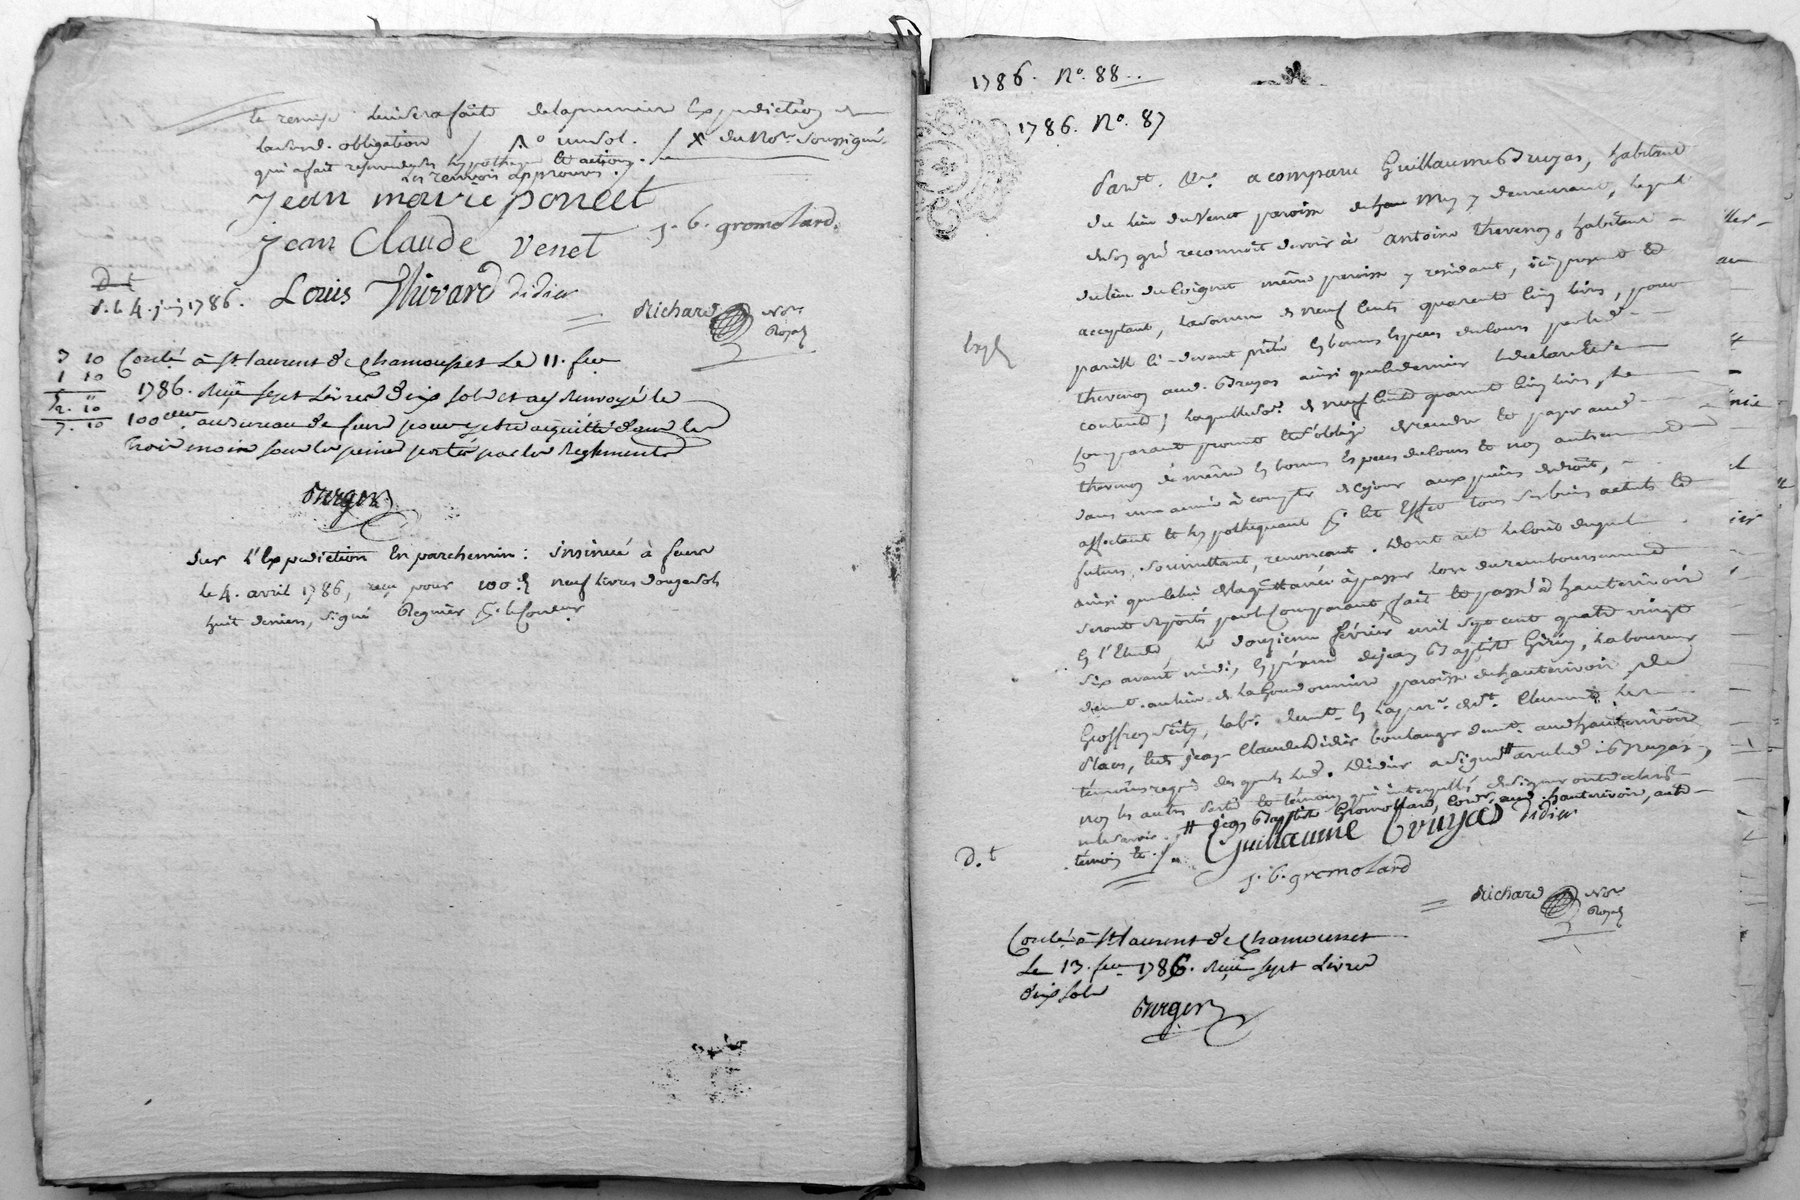 la remise luidera faite de la premiere Expediction de
lad. obligation / Ro un sol. / x du Nore. Soussigné
qui a fait reserve de ses hypotheque et actions.
les renvois approuvés.
Jean marie poncet
j. b. gromolard.
jean Claude Venet
Louis Thivard didier
D. t
d. le 4. juin 1786.
Richard Nore Royal
7 10
1 10
5 "
2. 10
7. 10
Conlé à St laurent de Chamousset Le 11. fev
1786. Reçu sept Livres dix sols et ay renvoyé le
100eme. au bureau de feurs pour y etre acquitté dans les
trois mois sous les peines portés par les Reglements
Berger
Sur l'Expediction En parchemin: insinué à feurs
le 4. avril 1786, reçu pour 100e. neuf livres douze sols
huit deniers, signé Regnier pr. le Conleur
1786. No. 88.
1786. No. 87
Pardt. &c. a comparu Guillaume Bruyas, habitant
du lieu du Venot paroisse de haute Rivoire y demeurant, lequel
de son gré reconnoit devoir à Antoine Thevenon, habitant
du lieu du Coignet même paroisse y residant, ici present et
acceptant, la somme de neuf cents quarante cinq livres, pour
pareille ci-devant prêté En bonnes Especes du cours par led.
thevenon aud. Bruyas ainsi que le dernier le declare et se
contente; laquelle so. de neuf cents quarante cinq livres, le
Comparant promet et s'oblige de rendre et payer aud.
thevenon de même En bonnes Especes du cours et non autrement
dans une année à compter de ce jour aux peines de droit,
affectant et hypothequant pr. cet Effet tous ses biens actuels et
futurs, Soumettant, renonçant. Dont acte le Coût duquel
ainsi que celui de la quittance à passer lors du remboursement
seront suportés par le Comparant, fait et passé à hauterivoir
En l'Etude, le douzieme fevrier mil sept cent quatre vingt
six avant midi, En presence de jean Baptiste Girin, laboureur
demt. au lieu de la Goudonniere paroisse de hauterivoir, et de
Geoffroy Peity, labr. demt. En la par. de St. Clement les
Places, led. jean Claude Didier boulanger demt. aud. hauterivoir
témoins requis desquels led. Didier a signé # avec led. Bruyas,
non les autres partie et témoin qui interpellés de signer ont déclaré
ne le savoir. # jean Baptiste Gromollard, cordr. aud. hauterivoir, autre
témoin et
Guillaume Bruyas didier
j. b. gromolard
Expé
D. t
Richard Nore Royal
Conlé à St laurent de Chamousset
Le 13. fev 1786. Reçu sept Livres
dix sols
Berger